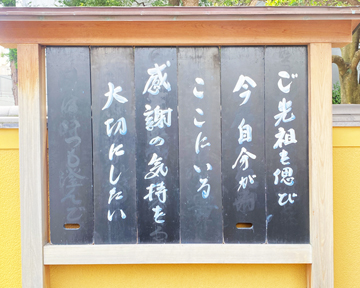 ご先祖を偲び
今 自分が
ここにいる
感謝の気持を
大切にしたい